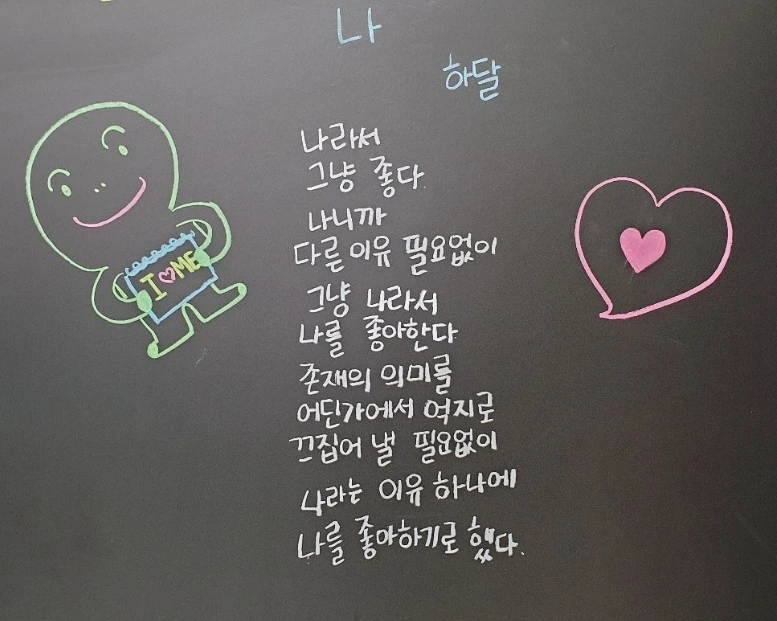 나
하달
나라서
그냥 좋다.
나니까
다른 이유 필요없이
그냥 나라서
나를 좋아한다
존재의 의미를
어딘가에서 억지로
끄집어 낼 필요없이
나라는 이유 하나에
나를 좋아하기로 했다.
I♡ME